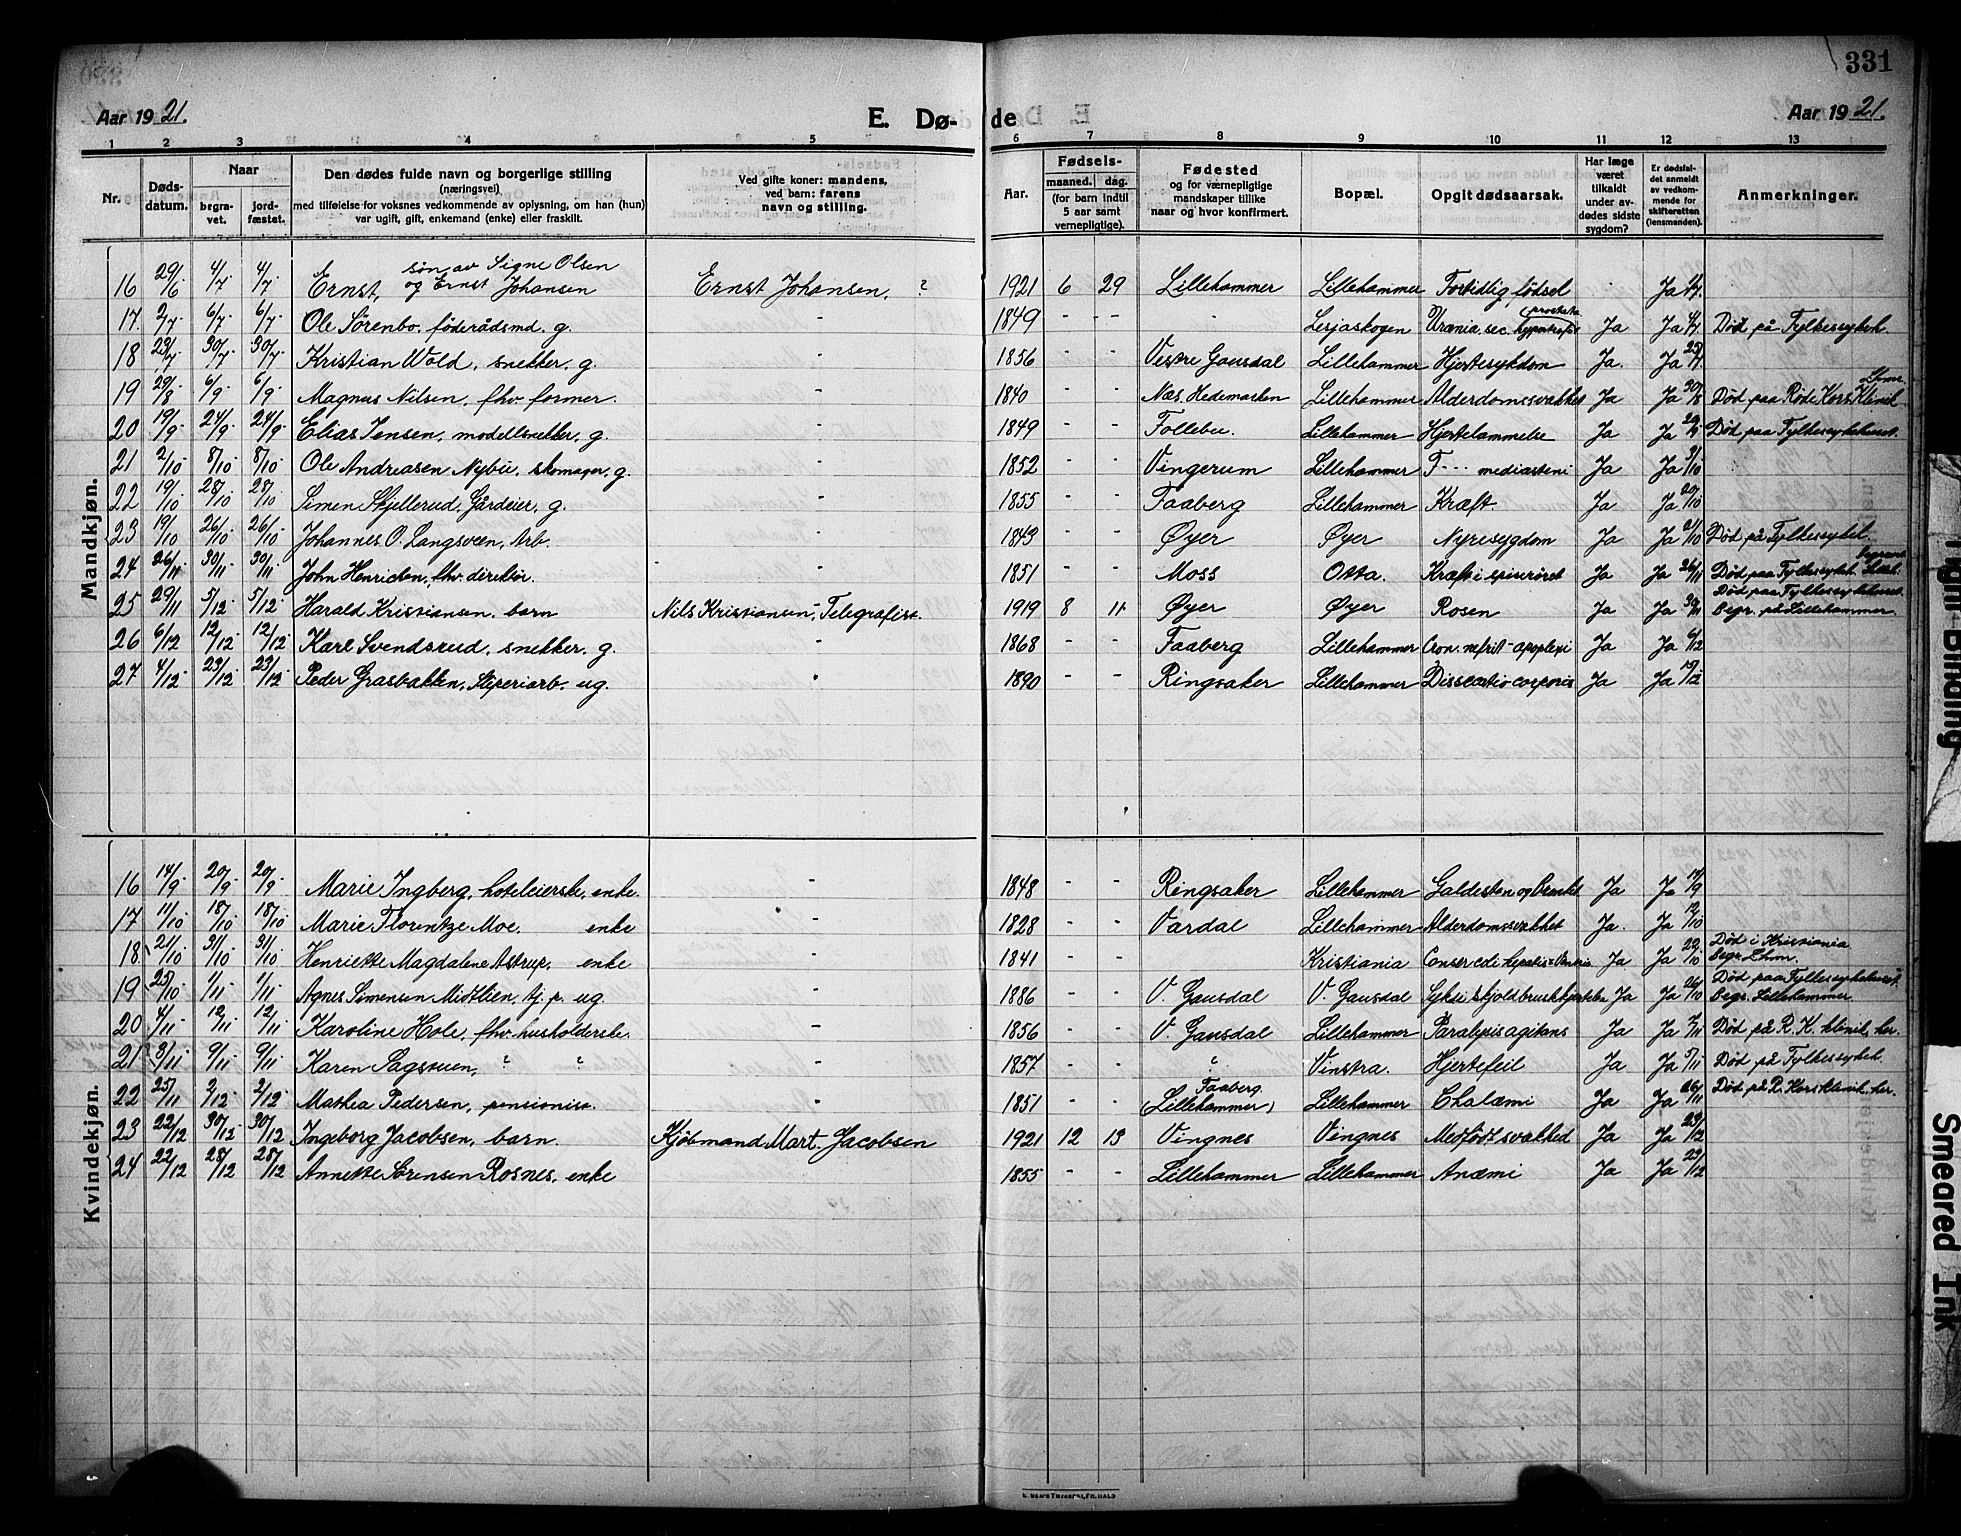 331
Aar 1921.
E. Dø-
de
Aar 1921.
1 2 3 4 5 6 7 8 9 10 11 12 13
Nr.
Døds-
datum.
Naar
begra-
vet.
jord-
fæstet.
Den dødes fulde navn og borgerlige stilling
(næringsvei)
med tilføielse for voksnes vedkommende av oplysning, om han (hun)
var ugift, gift, enkemand (enke) eller fraskilt.
Ved gifte koner: mandens,
ved barn: farens
navn og stilling.
Aar.
Fødsels-
maaned. dag.
(for barn indtil
5 aar samt
vernepligtige).
Fødested
og for værnepligtige
mandskaper tillike
naar og hvor konfirmert.
Bopæl.
Opgit dødsaarsak.
Har læge
været
tilkaldt
under av-
dødes sidste
sygdom?
Er dødsfal-
det anmeldt
av vedkom-
mende for
skifteretten
(lensmanden).
Anmerkninger.
Mandkjøn.
søn av Signe Olsen
16 29/6 4/7 4/7 Ernst, og Ernst Johansen Ernst Johansen. ? 1921 6 29 Lillehammer Lillehammer Fortidlig fødsel Ja
17. 2/7 6/7 6/7 Ole Sørenbo, føderådsmd. g. - 1849 - - - Lesjaskogen Uræmia, sec. prostata Ja Ja 4/7 Død på Fylkessykeh.
18 23/7 30/7 30/7 Kristian Wold, snekker, g. - 1856 - - Vestre Gausdal Lillehammer Hjertesykdom Ja. Ja 25/7
19 29/8 6/9 6/9 Magnus Nilsen, fhv. former. - 1840 - - Næs, Hedemarken Lillehammer Alderdomssvakhet Ja Ja 30/8 Død paa Røde Kors Klinik Lhmr.
20 19/9 24/9 24/9 Elias Jensen, modellsnekker, g. - 1849 - - Follebu. Lillehammer Hjertelammelse Ja Ja Død paa Fylkessykehuset.
21 2/10 8/10 8/10 Ole Andreasen Nybu, skomager, g. - 1852 - - Vingerum Lillehammer F--- mediasteni Ja Ja 3/10
22 19/10 28/10 28/10 Simen Skjellerud, Gårdeier, g. - 1855 - - Faaberg Lillehammer Kræft. Ja Ja 20/10
23 19/10 26/10 26/10 Johannes O. Langsveen, Arb. - 1849 - - Øyer Øyer Nyresygdom Ja Ja 21/10 Død på Fylkessykeh.
24 26/11 30/11 30/11 John Henriksen, fhv. direktør. - 1851 - - Moss Otta. Kræft i spiserøret Ja Ja 26/11 Død paa Fylkessykeh.
25 29/11 5/12 5/12 Harald Kristiansen, barn Nils Kristiansen, Telegrafist. 1919 8 11 Øyer Øyer Rosen Ja Ja 30/11 Død paa Fylkessykehuset. Begr. på Lillehammer.
26 6/12 12/12 12/12 Karl Svendsrud, snekker, g. - 1868 - - Faaberg Lillehammer Cron. nefrit - apoplexi Ja Ja 6/12
27 4/12 23/12 23/12 Peder Grasbakken, Sliperiarb. ug. - 1890 - - Ringsaker Lillehammer Dissectio corporis Ja Ja 19/12
Kvindekjøn.
16 14/9 20/9 20/9 Marie Ingberg, hoteleierske, enke - 1848 - - Ringsaker Lillehammer Galdesten og Ja Ja
17 11/10 18/10 18/10 Marie Florentze Moe, enke - 1828 - - Vardal Lillehammer Alderdomssvakhet Ja. Ja 12/10
18 21/10 31/10 31/10 Henriette Magdalene Astrup, enke - 1841 - - Kristiania Ja Ja 22/10 Død i Kristiania Begr. Lhmr.
19 25/10 1/11 1/11 Agnes Simensen Midtlien, tj. p. ug. - 1886 - - V. Gausdal V. Gausdal skjoldbruskkjertelen Ja Ja 26/10 Død paa Fylkessykehuset. Begr. Lillehammer.
20 4/11 12/11 12/11 Karoline Hole, fhv. husholderske. - 1856 - - V. Gausdal Lillehammer Paralysis agitans Ja Ja 7/11 Død på R. K. klinik, her.
21 3/11 9/11 9/11 Karen Sagsveen, ? ? - 1857 - - ? Vinstra. Hjertefeil Ja Ja 5/11 Død på Fylkessykeh.
22 25/11 2/12 2/12 Mathea Pedersen, pensionist. - 1851 - - Faaberg (Lillehammer) Lillehammer Ja Ja 26/11 Død på R. Kors klinik, her.
23 22/12 30/12 30/12 Ingeborg Jacobsen, barn. Kjøbmand Mart. Jacobsen 1921 12 13 Vingnes Vingnes Medfødt svakhed Ja Ja 23/12
24 22/12 28/12 28/12 Annette Sørensen Rosnes, enke 1855 - - Lillehammer Lillehammer Anæmi Ja Ja 23/12
Tight Binding
Smeared Ink